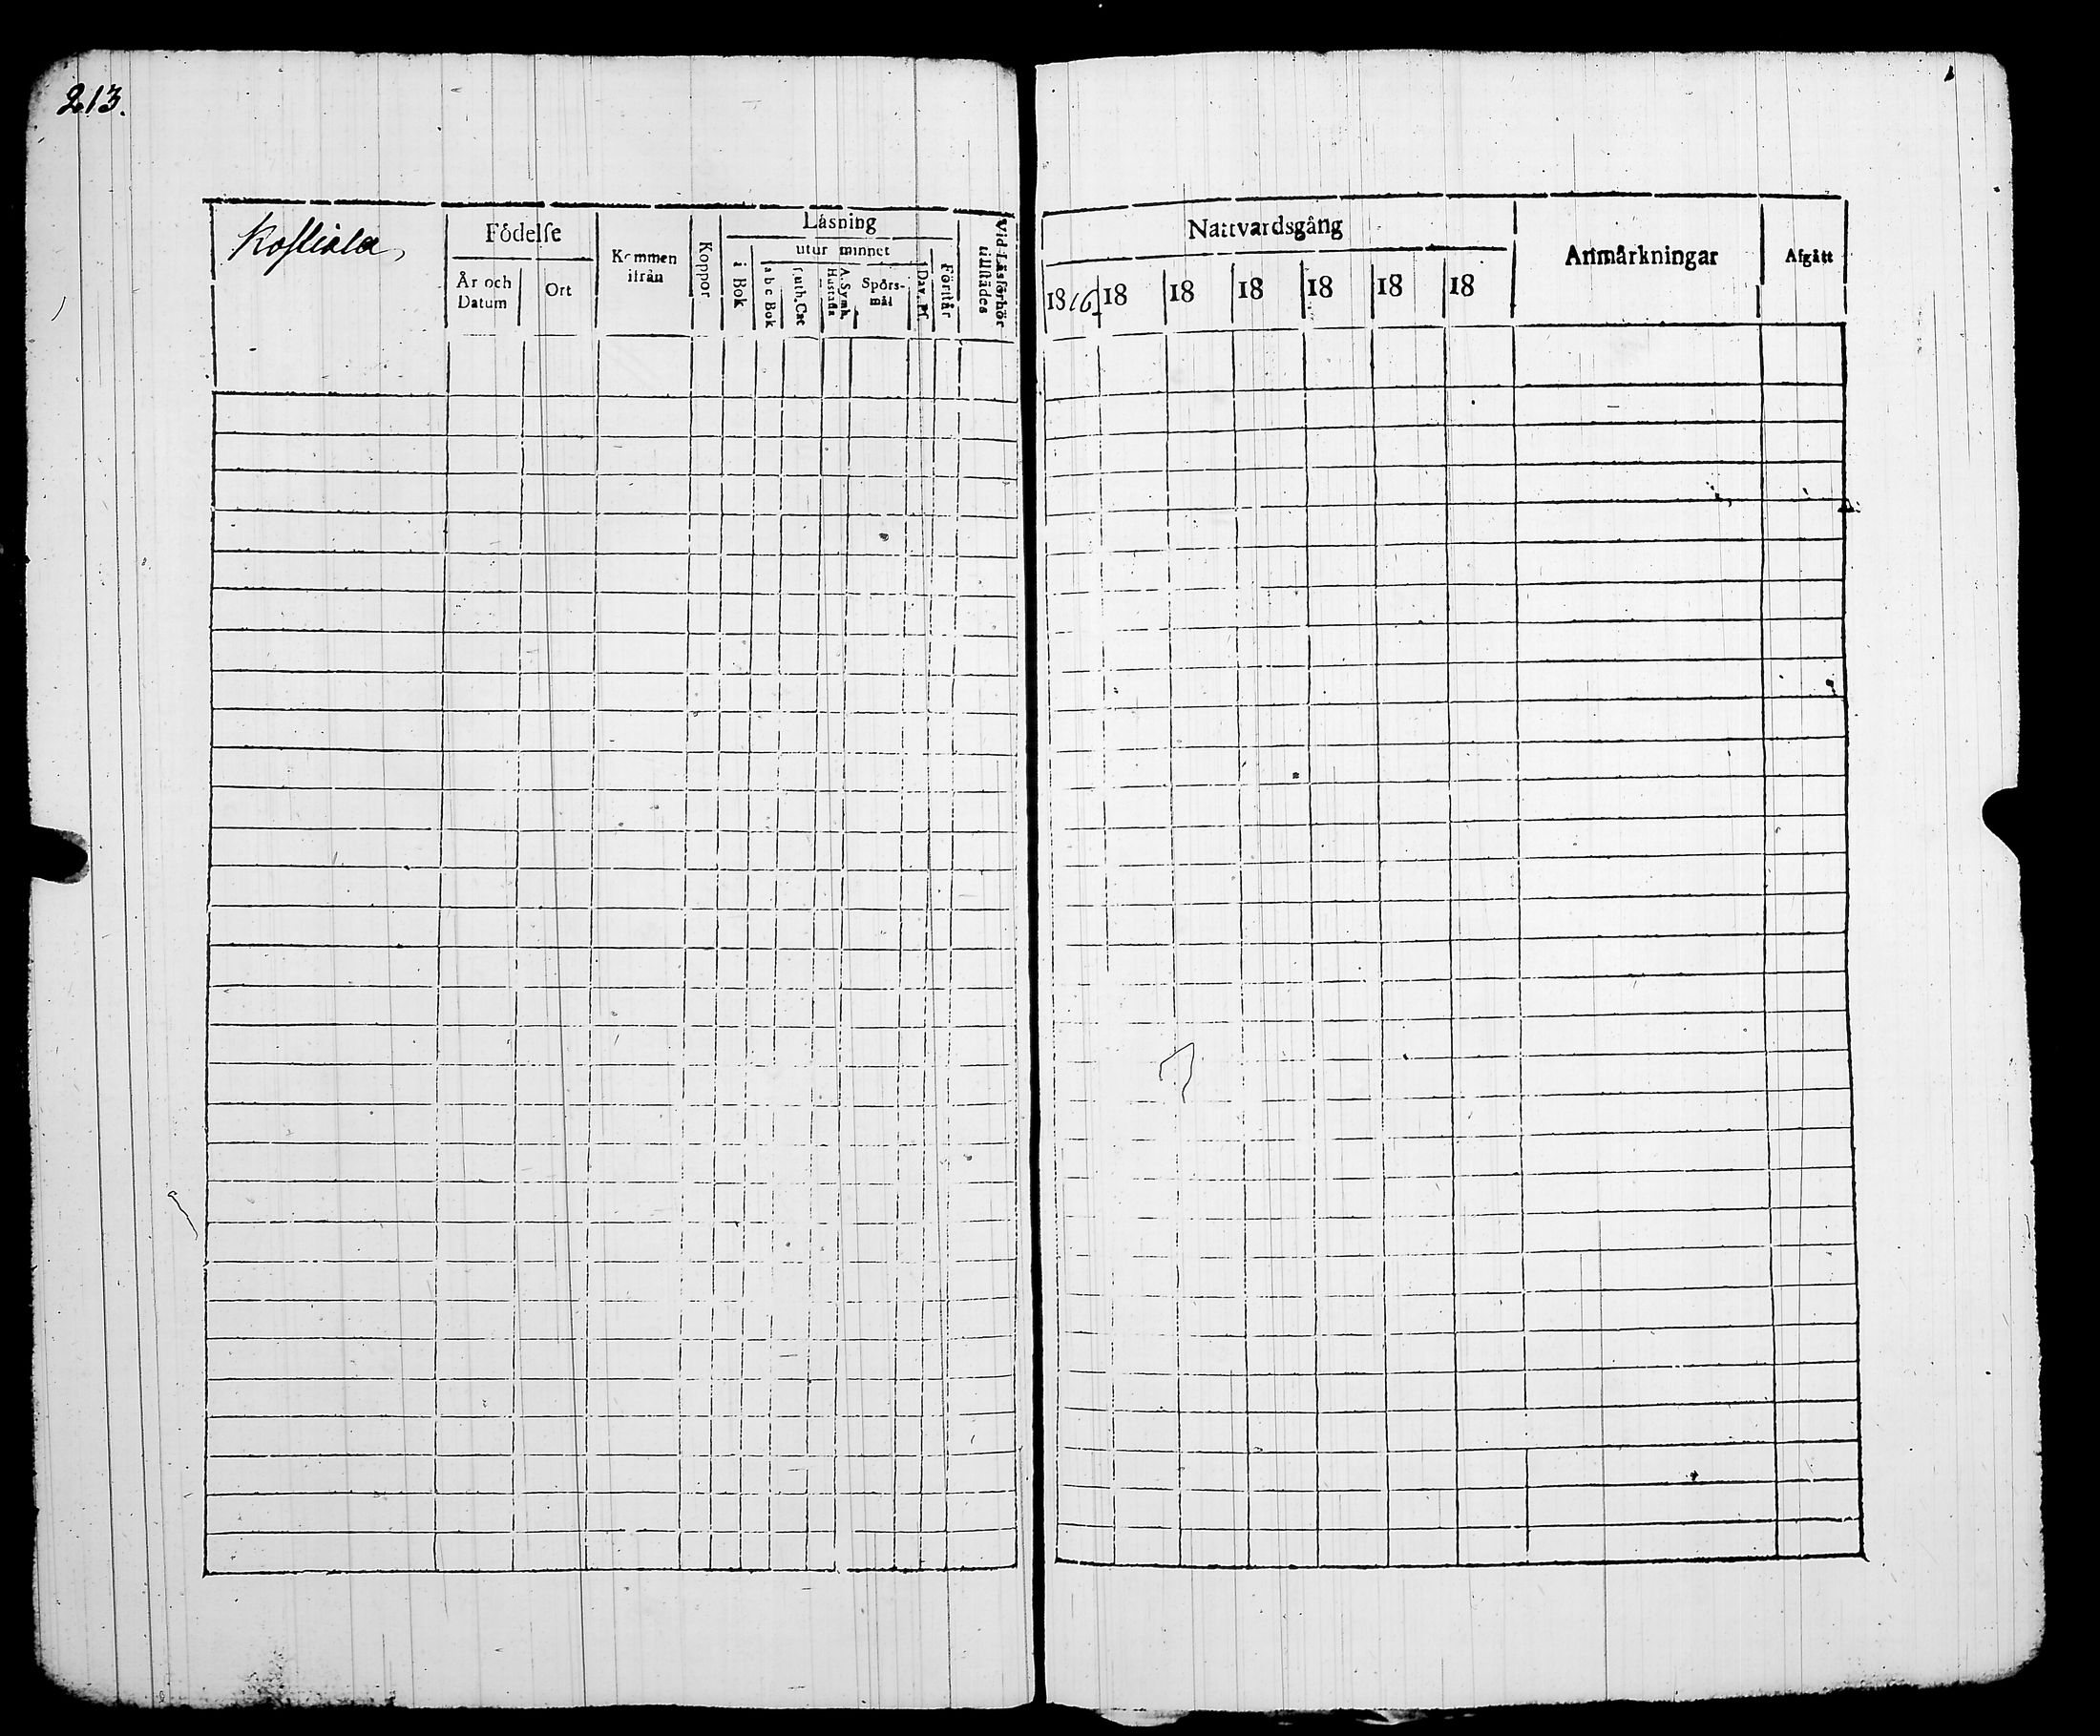 213.
Koskiala,
Födelse
År och Datum
Ort
Kommen ifrån
Koppor
Läsning
i Bok
utur minnet
a b c Bok
Luth. Cat
A. Symb. Hustafla
Spörs-mål
Dav. Ps
Förstår
Vid Läsförhör tillstädes
Nattvardsgång
1816 18 18 18 18 18 18
Anmärkningar
Afgått